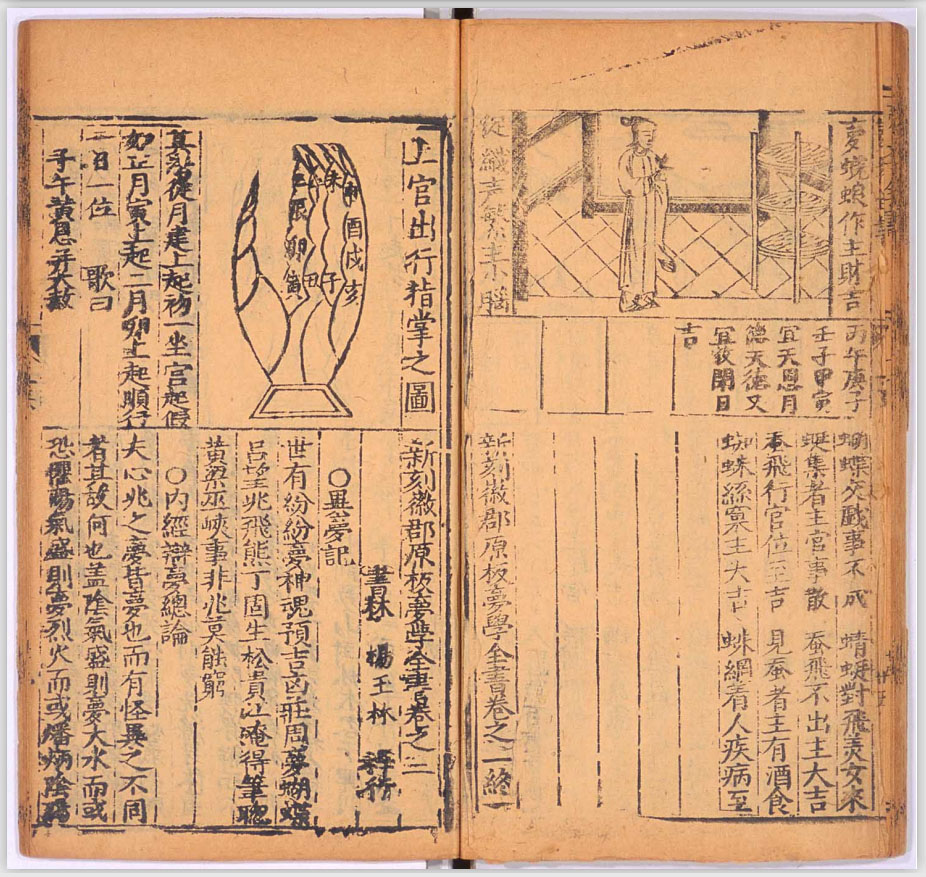 夢蜣蜋作主財吉
丙午庚子
壬子甲寅
宜天恩月
德天德又
宜閉日
吉
蝴蝶交戯事不成 蜻蜓對飛美女來
蜓集者主官事散 蚕飛不出主大吉
蚕飛行官位至吉 見蚕者主有酒食
蜘蛛絲窠主大吉 蛛網着人疾病至
新刻徽郡原板夢學全書卷之一終
上官出行指掌之圖
申酉戌亥
未
巳辰卯寅丑子
其訣從月建上起初一坐宮起假
如正月寅上起二月卯上起順行
一日一位 歌曰
子午黃息并大
新刻徽郡原板夢學全書卷之二
書林 楊王林 梓行
〇異夢記
世有紛紛夢神魂預吉凶莊周夢蝴蝶
呂望兆飛熊丁固生松貴江淹得筆聰
黃粱巫峽事非兆莫能窮
〇内經辯夢總論
夫心兆之夢皆夢也而有怪異之不同
者其故何也盖陰氣盛則夢大水而或
恐懼陽氣盛則夢烈火而或燔焫陰陽